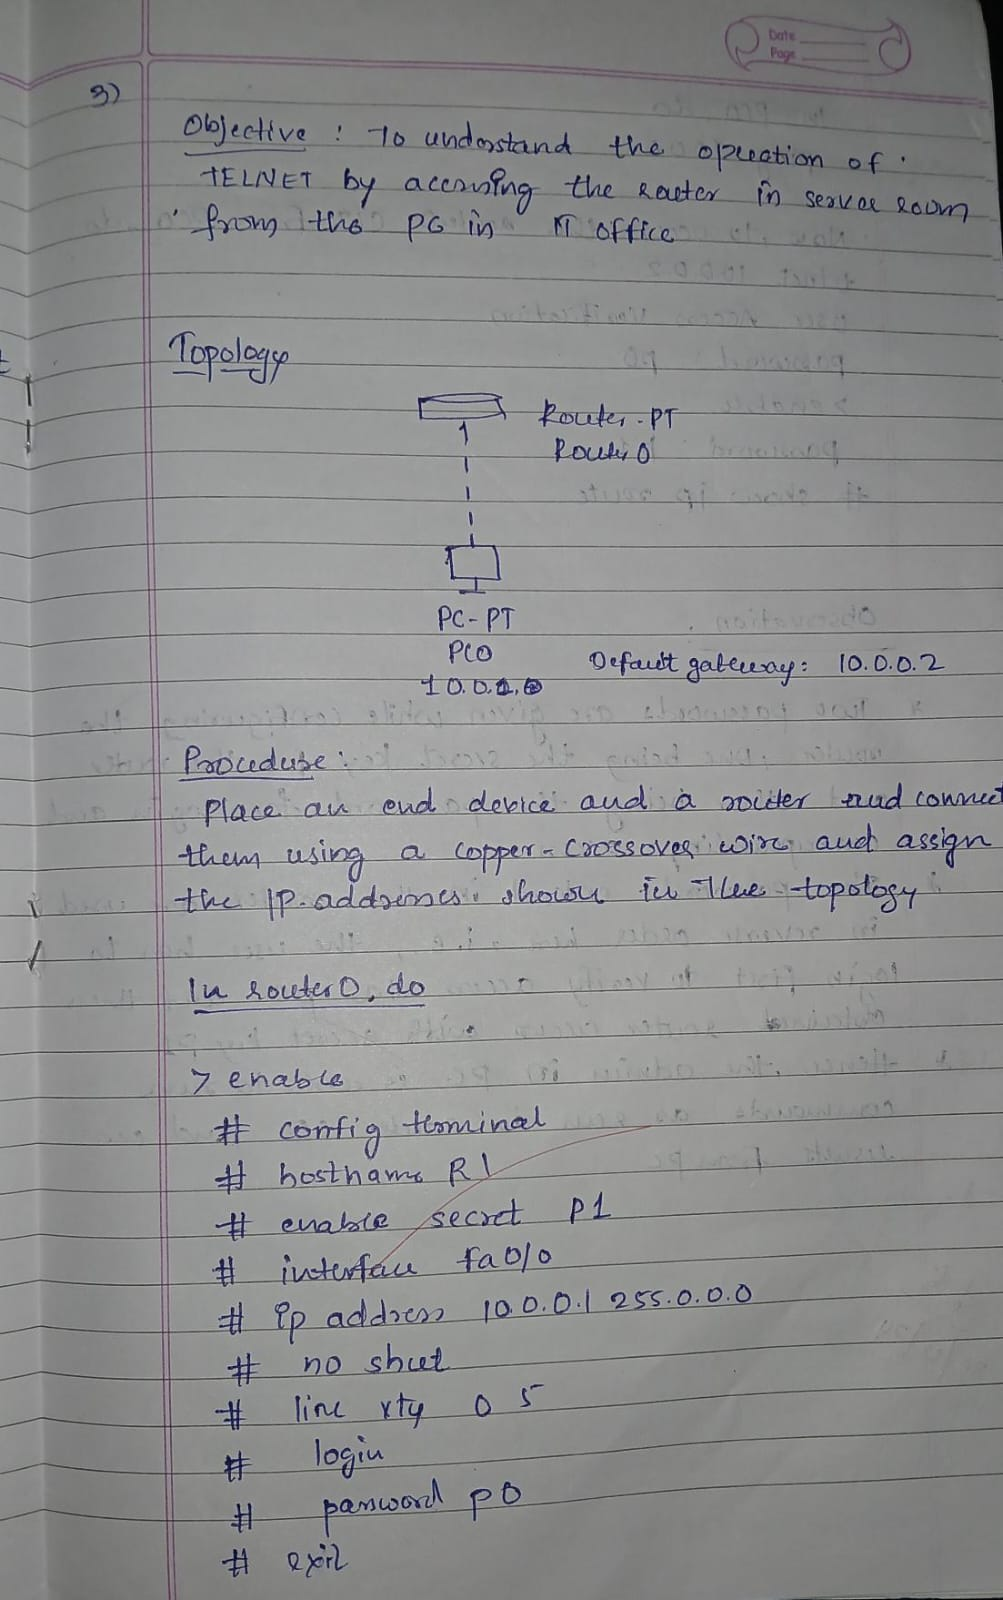 Date
Page
3)
Objective : To understand the opreation of
TELNET by accessing the router in server room
from the PC in IT office
Topology
Router-PT
Router0
PC-PT
PC0
Default gateway: 10.0.0.2
10.0.
Procedure:
Place an end device and a router and connect
them using a copper-crossover wire and assign
the IP addresses shown in the topology
In router0, do
> enable
# config terminal
# hostname R1
# enable secret P1
# interface fa0/0
# ip address 10.0.0.1 255.0.0.0
# no shut
# line vty 0 5
# login
# password p0
# exit